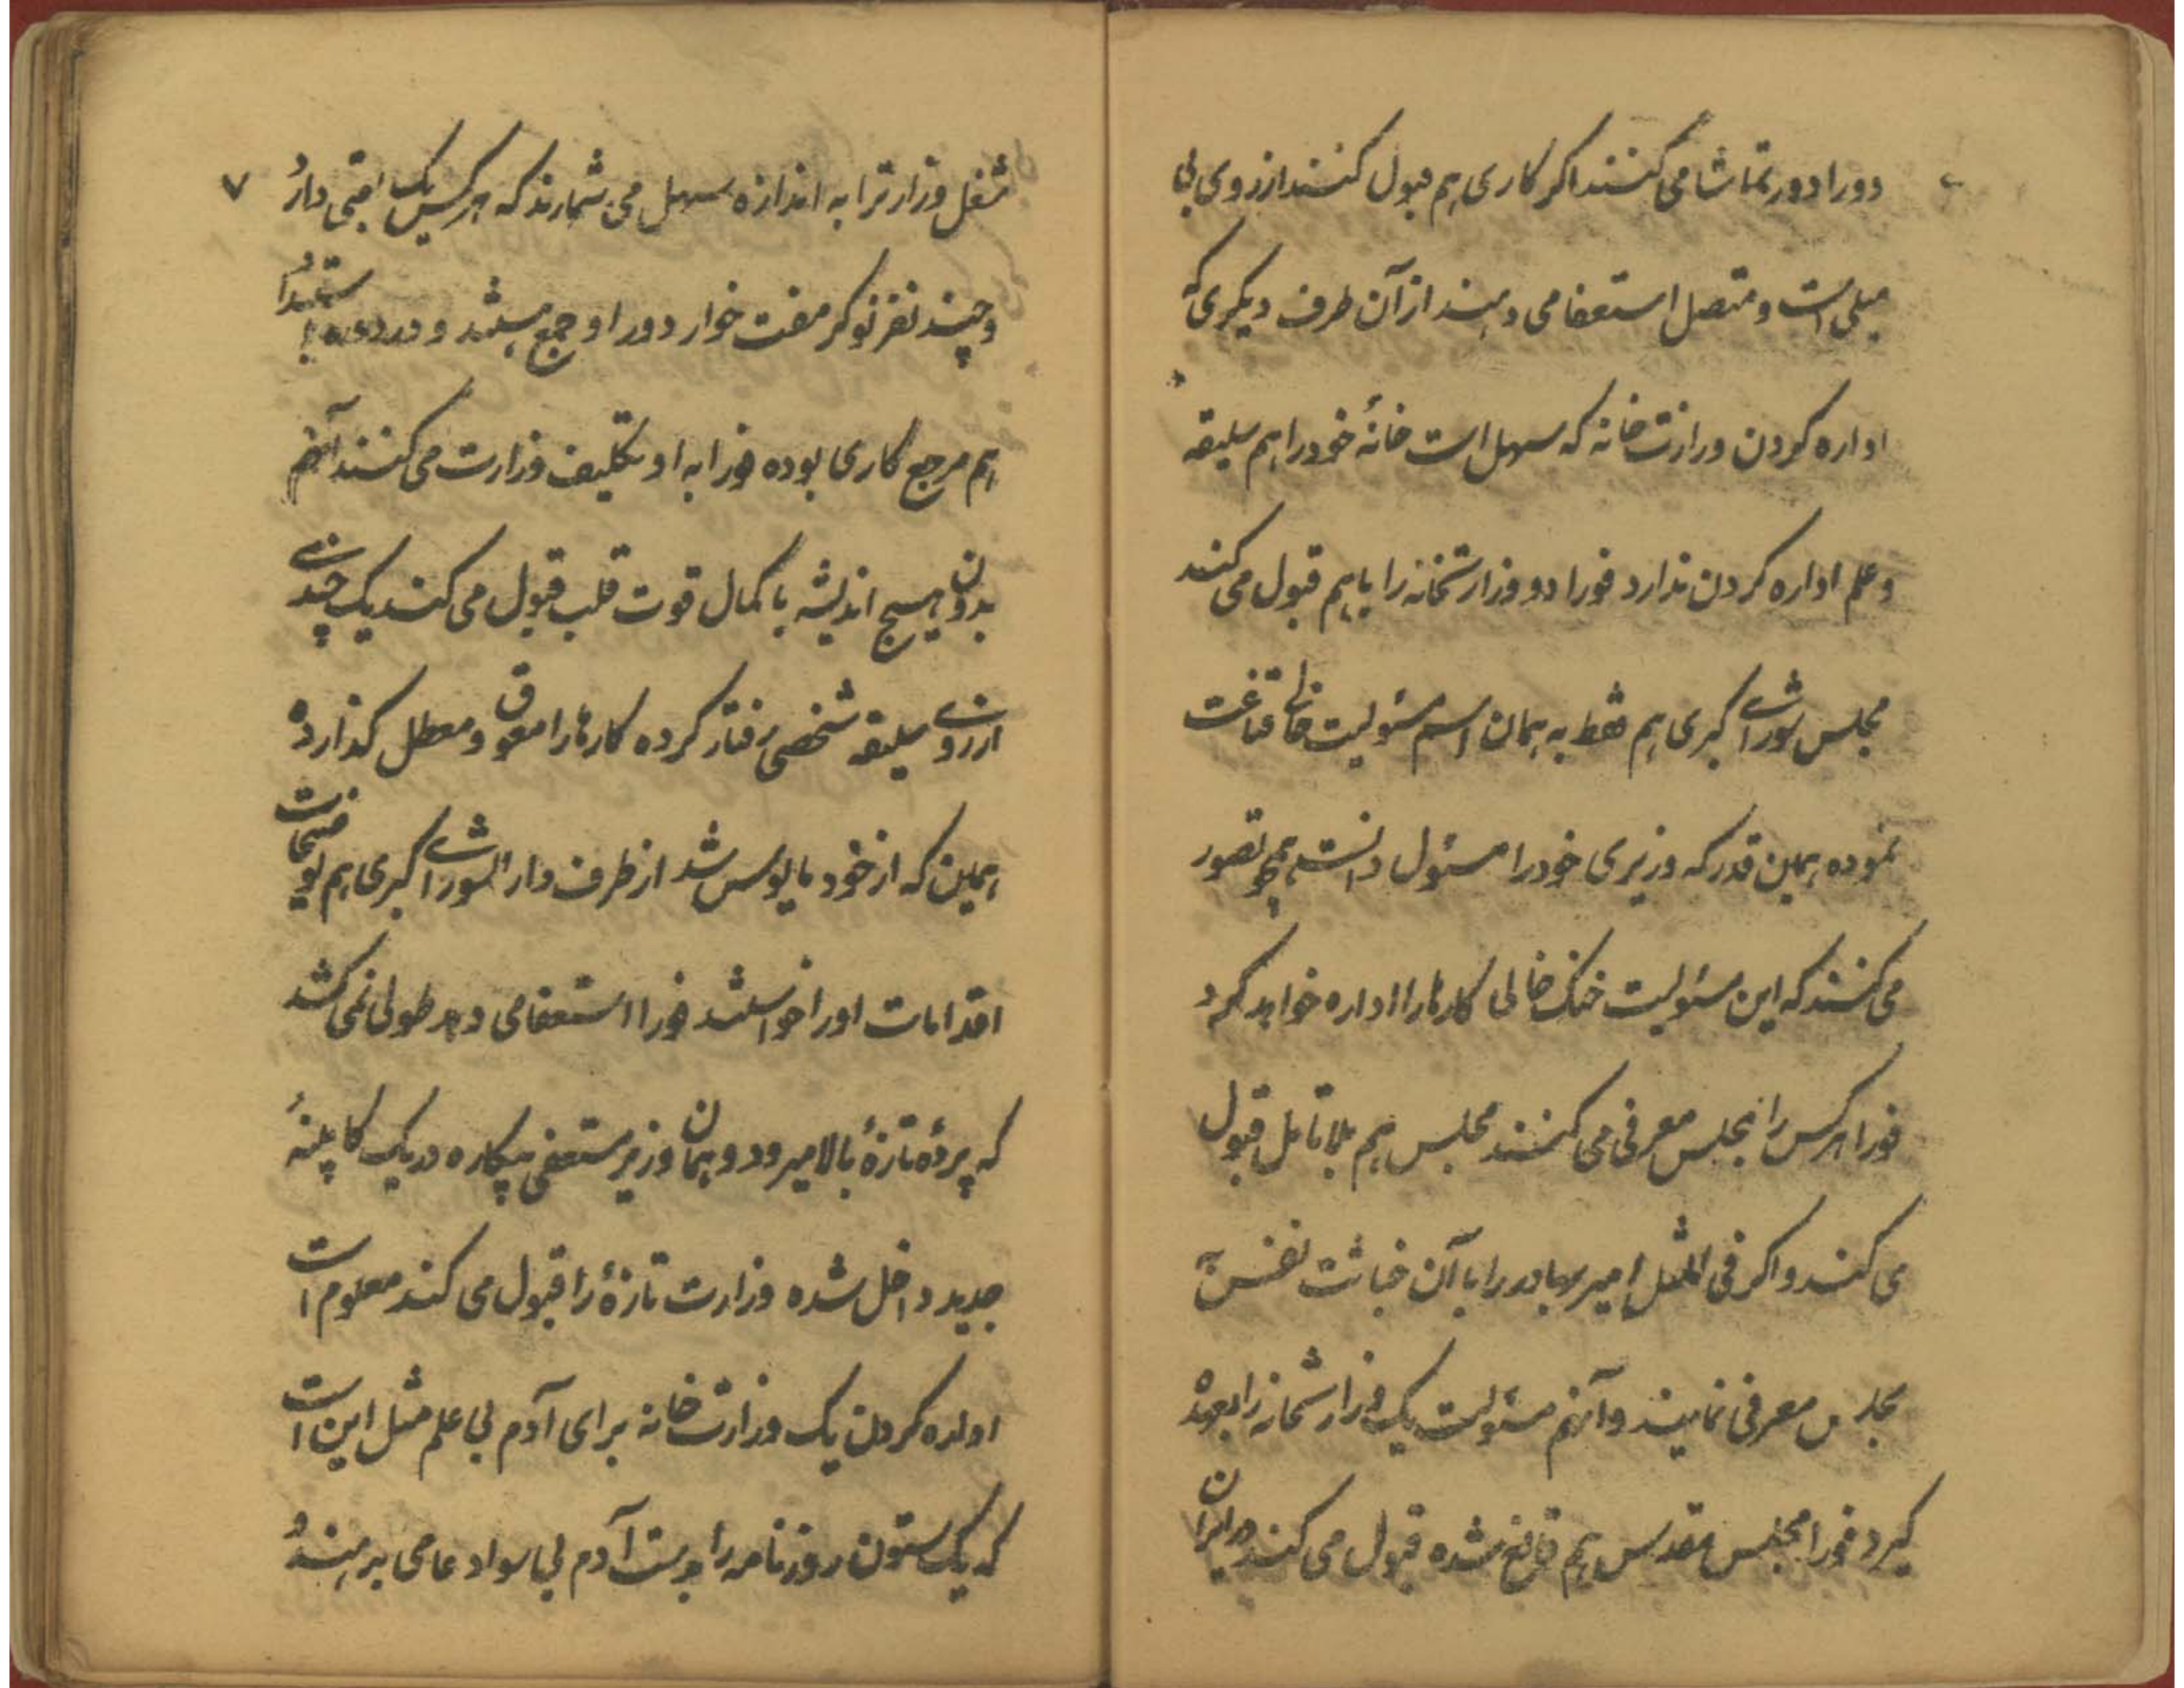 دورا دور تماشا می کنند اکر کاری هم قبول کنند از روی بی
میلی است و متصل استعفا می دهند از آن طرف دیکری که
اداره کردن وزارت خانه که سهل است خانهٔ خود را هم سلیقه
و علم اداره کردن ندارد فورا دو وزارتخانه را با هم قبول می کنند
مجلس شورای کبری هم فقط به همان اسم مسئولیت خالی قناعت
نموده همین قدر که وزیری خود را مسئول دانست همچو تصور
می کنند که این مسئولیت خشک خالی کارها را اداره خواهد کرد
فورا هر کس را بمجلس معرفی می کنند مجلس هم بلا تامل قبول
می کند و اکر فی المثل امیر بهادر را با آن خباثت نفس به
مجلس معرفی نمایند و آنهم مسئولیت یک وزارتخانه را بعهده
کیرد فورا مجلس مقدس هم قانع شده قبول می کند در ایران
۷
شغل وزارت را به اندازه سهل می شمارند که هر کس یک لقبی دارد
و چند نفر نوکر مفت خوار دور او جمع هستند و در دوره استبداد
هم مرجع کاری بوده فورا به او تکلیف وزارت می کنند آنهم
بدون هیچ اندیشه با کمال قوت قلب قبول می کند یک چندی
از روی سلیقه شخصی رفتار کرده کارها را معوق و معطل کذارده
همین که از خود مایوس شد از طرف دار الشورای کبری هم توضیحات
اقدامات او را خواستند فورا استعفا می دهد طولی نمی کشد
که پردهٔ تازهٔ بالا میرود و همان وزیر مستعفی بیکاره در یک کابینهٔ
جدید داخل شده وزارت تازهٔ را قبول می کند معلوم است
اداره کردن یک وزارت خانه برای آدم بی علم مثل این است
که یک ستون روزنامه را بدست آدم بی سواد عامی بدهند